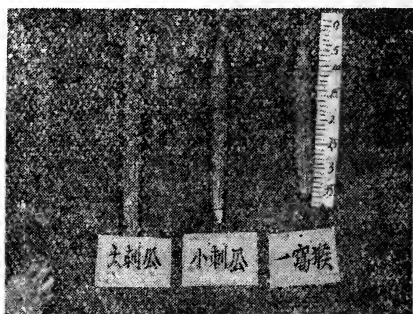 大刺瓜
小刺瓜
一窩猴
0
5